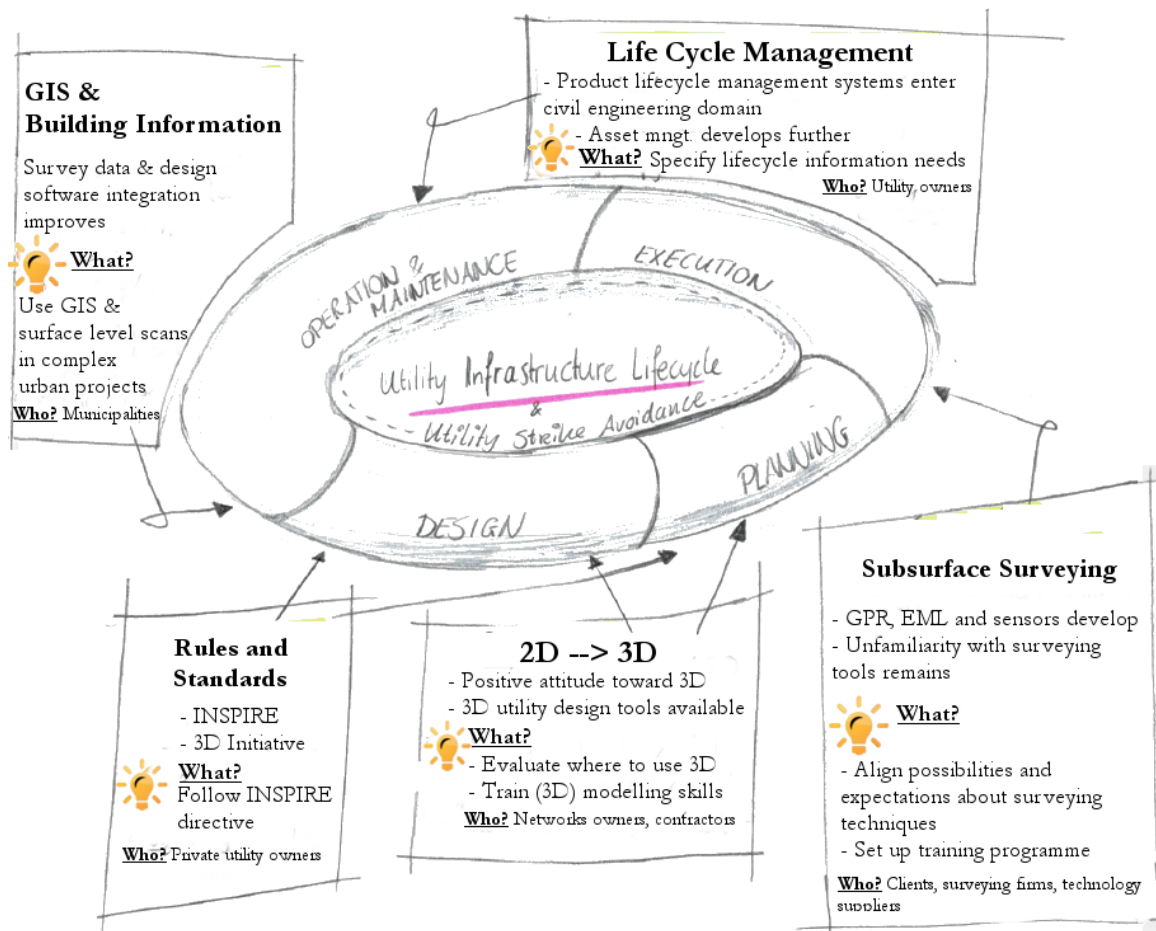 GIS &
Building Information
Survey data & design
software integration
improves
What?
Use GIS &
surface level scans
in complex
urban projects
Who? Municipalities
Life Cycle Management
- Product lifecycle management systems enter
civil engineering domain
- Asset mngt. develops further
What? Specify lifecycle information needs
Who? Utility owners
OPERATION &
MAINTENANCE
EXECUTION
Utility Infrastructure Lifecycle
&
Utility Strike Avoidance
PLANNING
DESIGN
Rules and
Standards
- INSPIRE
- 3D Initiative
What?
Follow INSPIRE
directive
Who? Private utility owners
2D --> 3D
- Positive attitude toward 3D
- 3D utility design tools available
What?
- Evaluate where to use 3D
- Train (3D) modelling skills
Who? Networks owners, contractors
Subsurface Surveying
- GPR, EML and sensors develop
- Unfamiliarity with surveying
tools remains
What?
- Align possibilities and
expectations about surveying
techniques
- Set up training programme
Who? Clients, surveying firms, technology
suppliers